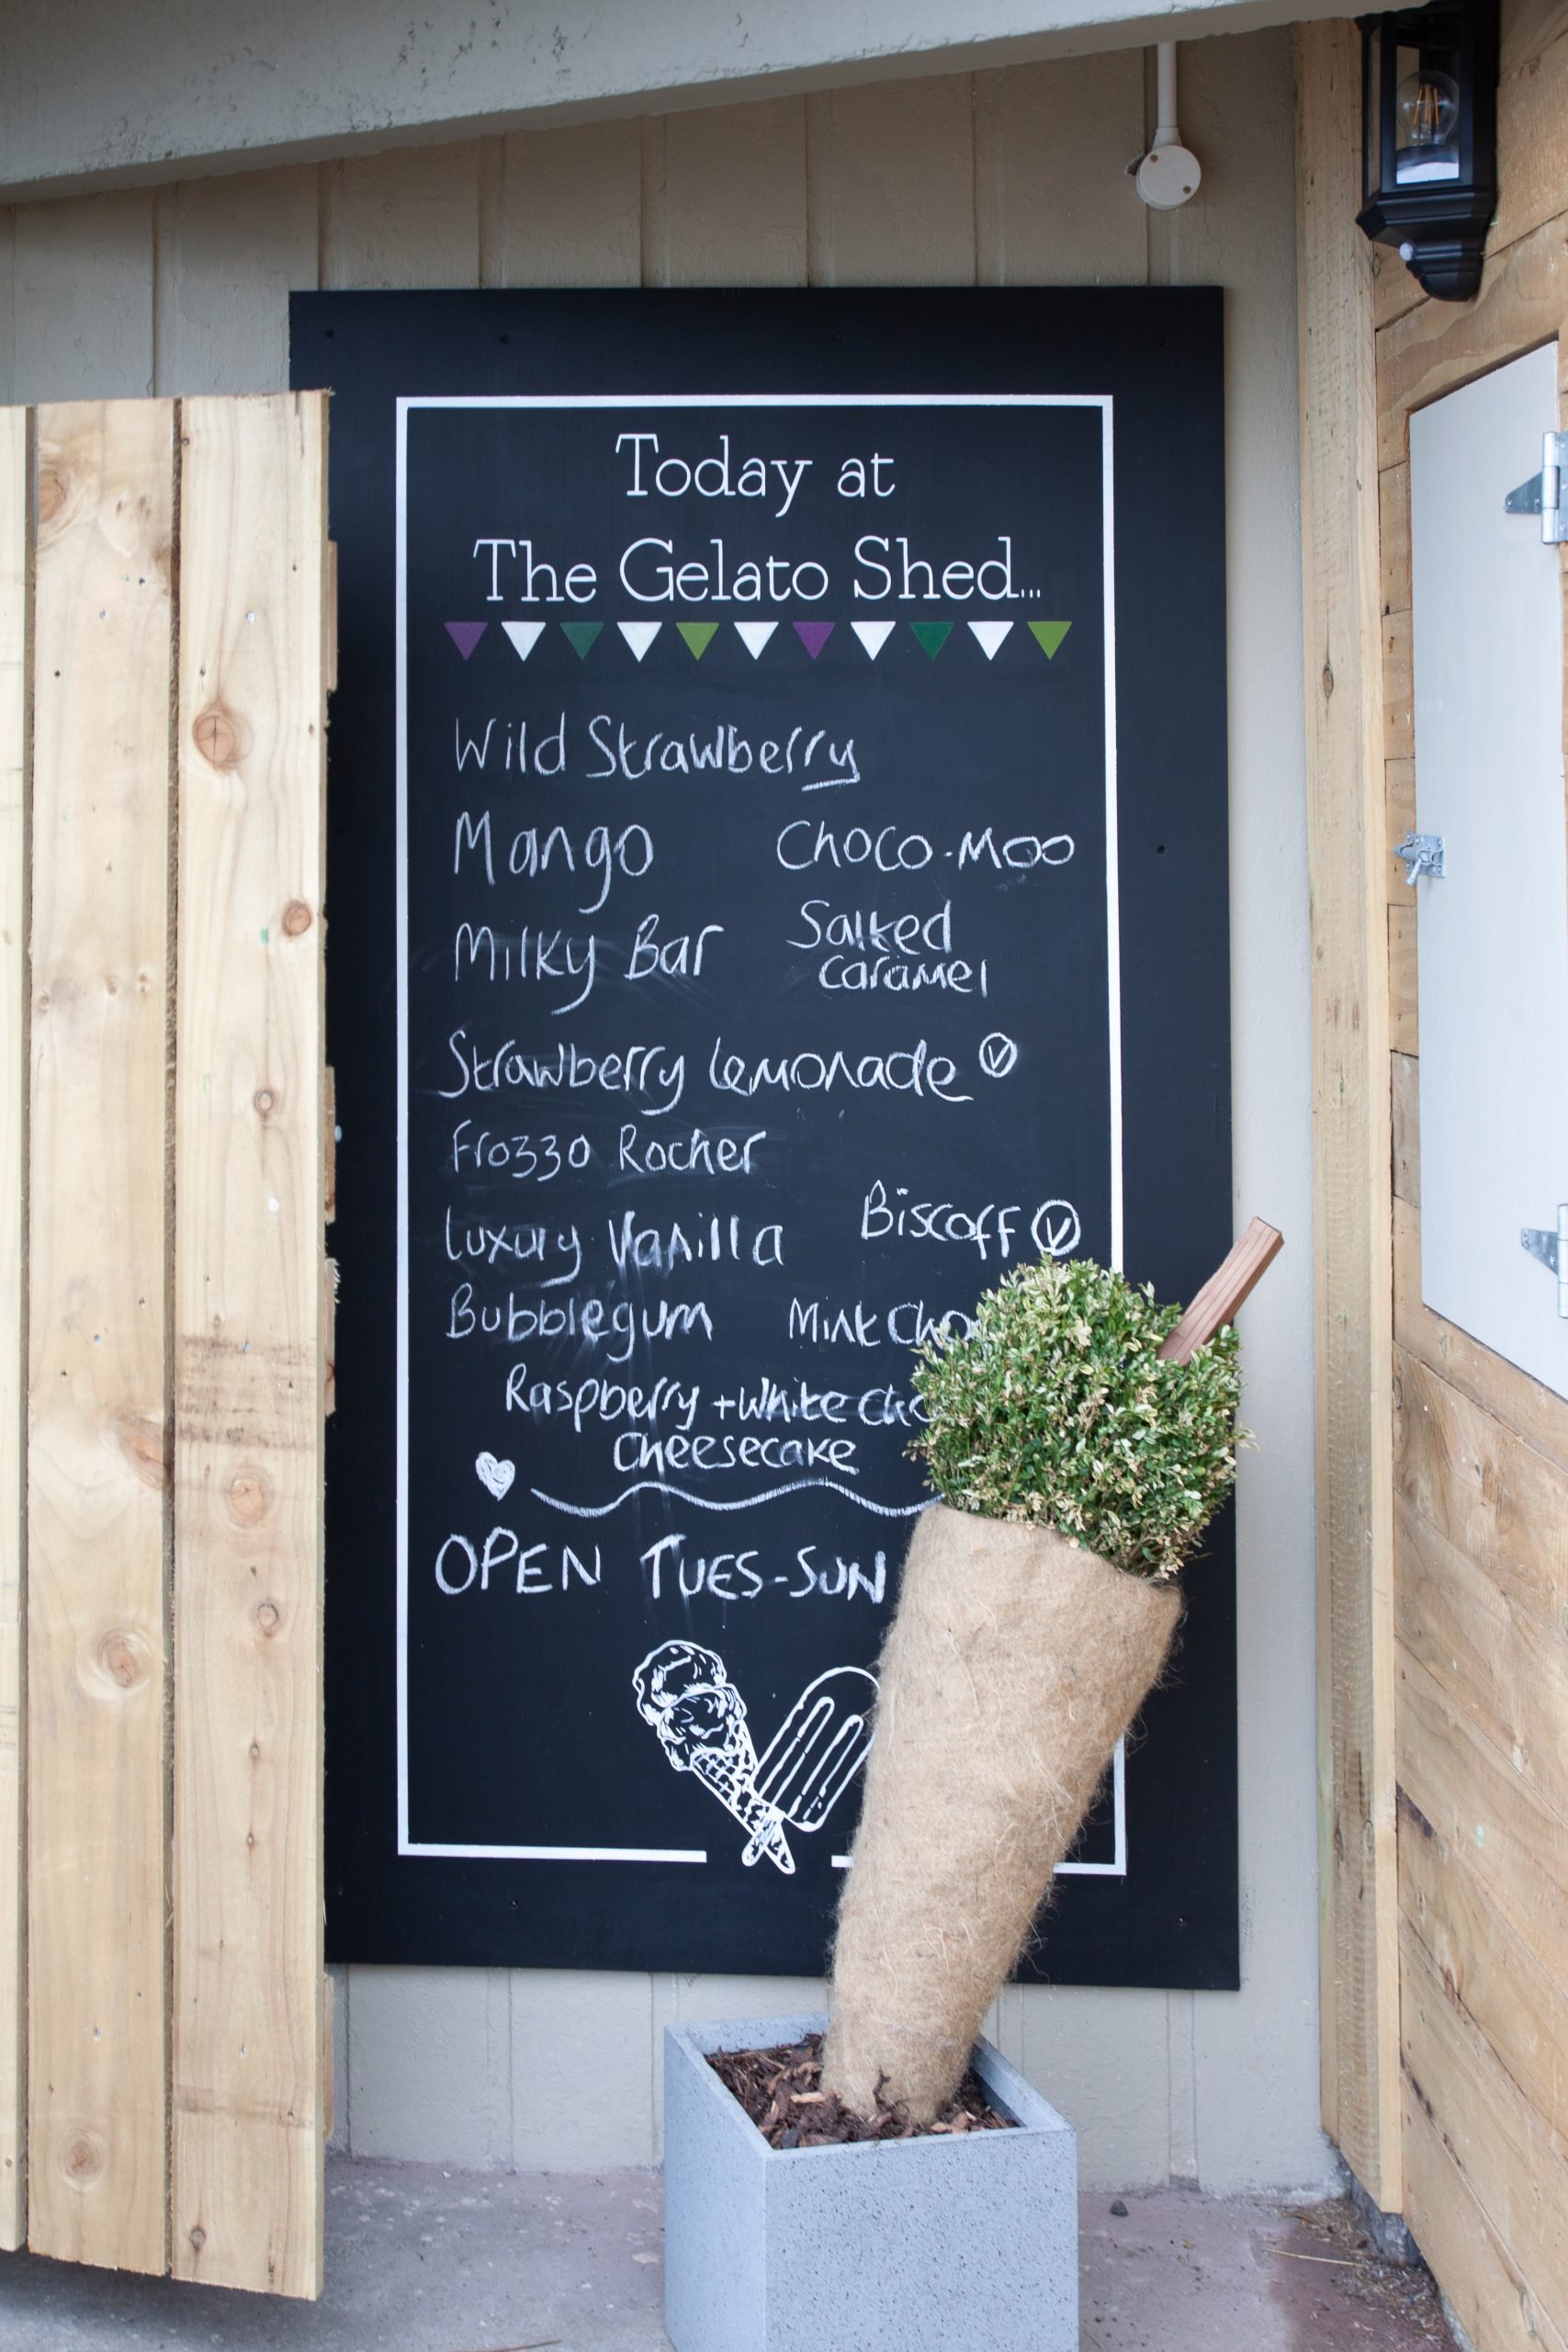 Today at
The Gelato Shed...
Wild Strawberry
Mango Choco-Moo
Milky Bar Salted
caramel
Strawberry Lemonade V
Frozzo Rocher
Luxury Vanilla Biscoff V
Bubblegum Mint
Raspberry + White
Cheesecake
OPEN TUES-SUN